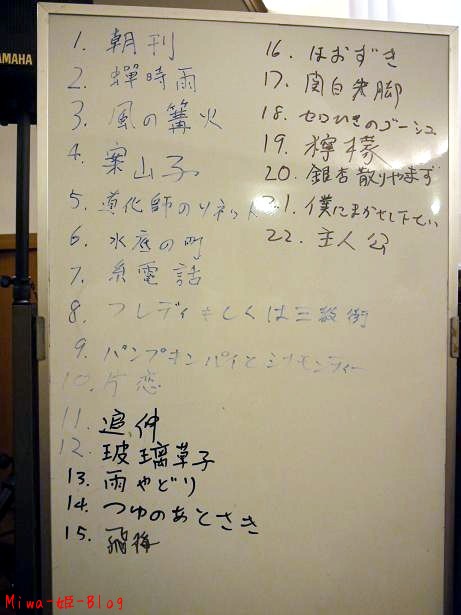 YAMAHA
1. 朝刊
2. 蟬時雨
3. 風の篝火
4. 案山子
5. 道化師のソネット
6. 水底の町
7. 糸電話
8. フレディもしくは三教街
9. パンプキンパイとシナモンティー
10. 片恋
11. 追伸
12. 玻璃草子
13. 雨やどり
14. つゆのあとさき
15. 飛梅
16. ほおずき
17. 関白失脚
18. セロひきのゴーシュ
19. 檸檬
20. 銀杏散りやまず
21. 僕にまかせて下さい
22. 主人公
Miwa-姫-Blog